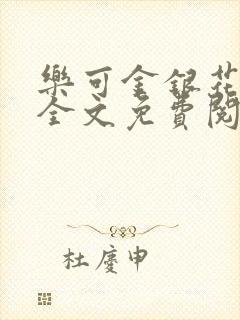 樂可金銀花
全文免費閱
杜慶申